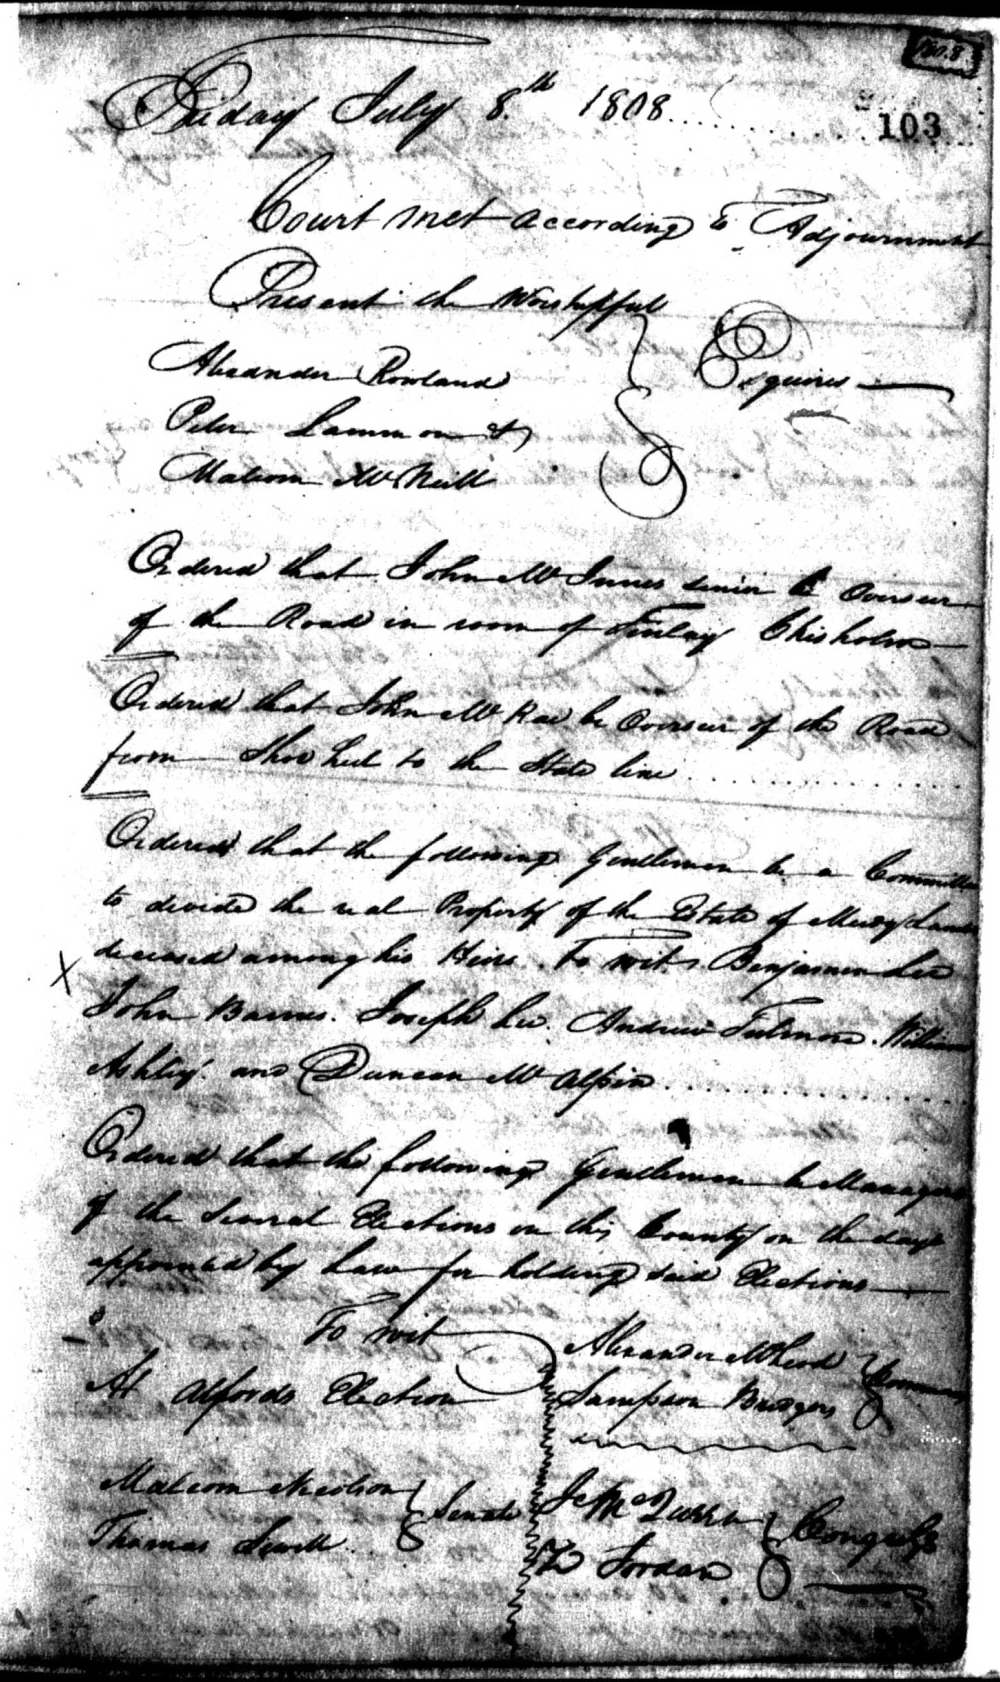 1808
Friday July 8th 1808
103
Court met according to Adjournment
Present the Worshipful
Alexander Rowland
Esquires
Peter Lammon &
Malcom McNeill
Ordered that John McInnes senior be Overseer
of the Road in room of Finlay Chisholm
Ordered that John McRae be Overseer of the Road
from Shoe heel to the State line
Ordered that the following Gentlemen be a Committee
to divide the real Property of the Estate of
deceased among his Heirs. To wit. Benjamin Lee
X
John Barnes. Joseph Lee. Andrew Fulmore. William
Ashley. and Duncan McAlpin
Ordered that the following Gentlemen be Managers
of the several Elections in this County on the days
appointed by Law for holding said Elections
To wit
At Alfords Election
Malcom
Thomas Sewell
Senate
Alexander McLeod
Sampson Bridgers
Commons
Z Jordan
Congress